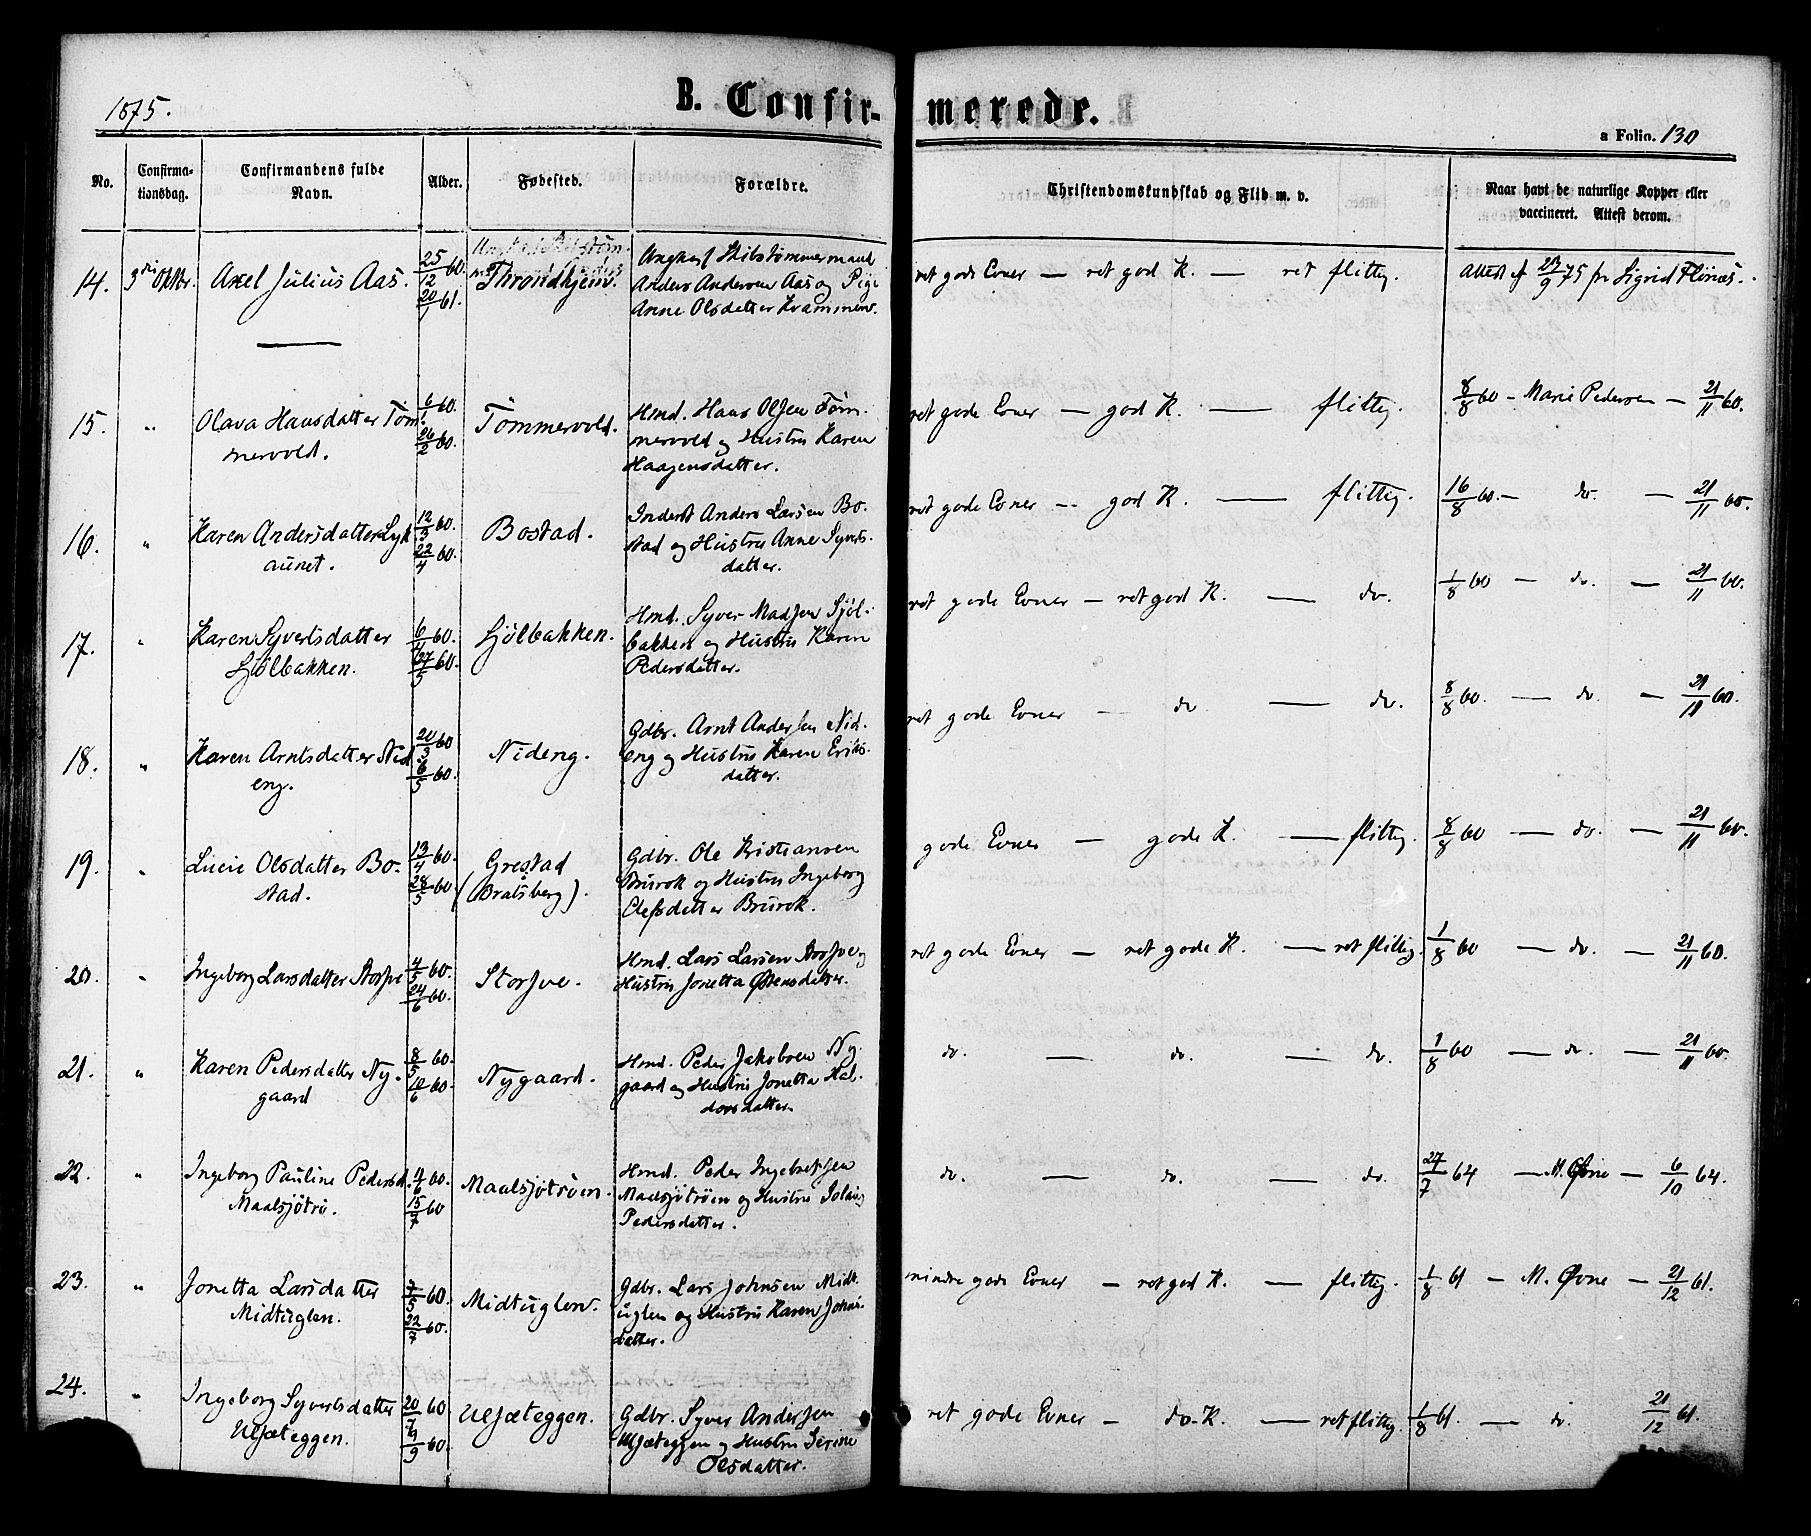 1875.
B. Confir-
merede.
a Folio. 130
No.
Confirma-
tionsdag.
Confirmandens fulde
Navn.
Alder.
Fødested.
Forældre.
Christendomskundskab og Flid m. v.
Naar havt de naturlige Kopper eller
vaccineret. Attest derom.
14. 3die Oktbr. Axel Julius Aas. 25/12 60. 20/1 61. Throndhjem.
Ungkarl Skibstømmermand
Anders Andersen Aas og Pige
Anne Olsdatter Krammen.
ret gode Evner — ret god K. — ret flittig.
Attest af 23/9 75 fra Sigrid Flönæs.
15. " Olava Hansdatter Töm-
mervold. 6/1 60. 26/2 60. Tömmervold.
Hmd. Hans Olsen Töm-
mervold og Hustru Karen
Haagensdatter.
ret gode Evner — god K. — flittig.
8/8 60 — Marie Pedersen — 21/11 60.
16. " Karen Andersdatter Lyk
aunet. 12/3 60. 22/4 60. Bostad.
Inderst Anders Larsen Bo-
stad og Hustru Anne Syverts-
datter.
ret gode Evner — god K. — flittig.
16/8 60. — do. — 21/11 60.
17. " Karen Syvertsdatter
Sjölbakken. 6/4 60. 27/5 60. Sjölbakken.
Hmd. Syver Madsen Sjöl-
bakken og Hustru Karen
Pedersdatter.
ret gode Evner — ret god K. — do.
1/8 60 — do. — 21/11 60.
18. " Karen Arntsdatter Nid
eng. 20/3 60 6/5 60. Nideng.
Gdbr. Arnt Andersen Nid-
eng og Hustru Karen Eriks-
datter.
ret gode Evner — do — do.
8/8 60. — do. — 21/11 60.
19. " Lucie Olsdatter Bo-
stad. 13/4 60. 28/5 60. Grestad
(Bratsberg).
Gdbr. Ole Kristiansen
Brurok og Hustru Ingeborg
Olefsdatter Brurok.
gode Evner — gode K. — flittig.
8/8 60 — do. — 21/11 60.
20. " Ingeborg Larsdatter Storsve 4/5 60. 24/6 60. Storsve.
Hmd. Lars Larsen Storsve og
Hustru Jonetta Østensdatter.
ret gode Evner — ret gode K. — ret flittig.
1/8 60 — do. — 21/11 60.
21. " Karen Pedersdatter Ny-
gaard 8/5 60. 10/6 60. Nygaard.
Hmd. Peder Jakobsen Ny-
gaard og Hustru Jonetta Hal-
dorsdatter.
do. — do. — do.
1/8 60 — do. — 21/11 60.
22. " Ingeborg Pauline Pedersd.
Maalsjötrö. 4/6 60. 15/7 60 Maalsjötröen.
Hmd. Peder Ingebretsen
Maalsjötröen og Hustru
Pedersdatter.
do. — do. — do.
27/7 64 — M. Øvne — 6/10 64.
23. " Jonetta Larsdatter
Midtuglen. 7/5 60. 22/7 60. Midtuglen.
Gdbr. Lars Johnsen Midt-
uglen og Hustru Karen Johns-
datter.
mindre gode Evner — ret god K. — flittig.
1/8 61 — M. Øvne — 21/12 61.
24. " Ingeborg Syvertsdatter
Ulsæteggen. 20/7 60 9/9 60. Ulsæteggen.
Gdbr. Syver Andersen
Ulsæteggen og Hustru Serine
Olsdatter.
ret gode Evner — do. K. — ret flittig.
1/8 61. — do. 21/12 61.